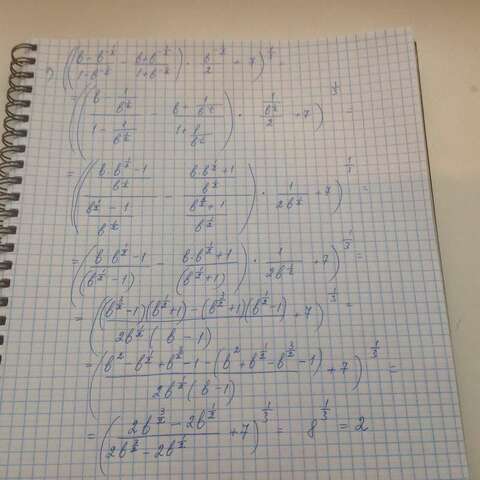 1) ((b - b^{-1/2})/(1 - b^{-1/2}) - (b + b^{-1/2})/(1 + b^{-1/2})) · b^{-1/2}/2 + 7)^{1/3} =
= (((b - 1/b^{1/2})/(1 - 1/b^{1/2}) - (b + 1/b^{1/2})/(1 + 1/b^{1/2})) · (1/b^{1/2})/2 + 7)^{1/3} =
= ((((b·b^{1/2} - 1)/b^{1/2})/((b^{1/2} - 1)/b^{1/2}) - ((b·b^{1/2} + 1)/b^{1/2})/((b^{1/2} + 1)/b^{1/2})) · 1/(2b^{1/2}) + 7)^{1/3} =
= (((b·b^{1/2} - 1)/(b^{1/2} - 1) - (b·b^{1/2} + 1)/(b^{1/2} + 1)) · 1/(2b^{1/2}) + 7)^{1/3} =
= (((b^{3/2} - 1)(b^{1/2} + 1) - (b^{3/2} + 1)(b^{1/2} - 1))/(2b^{1/2}(b - 1)) + 7)^{1/3} =
= ((b^2 - b^{1/2} + b^{3/2} - 1 - (b^2 + b^{1/2} - b^{3/2} - 1))/(2b^{1/2}(b - 1)) + 7)^{1/3} =
= ((2b^{3/2} - 2b^{1/2})/(2b^{3/2} - 2b^{1/2}) + 7)^{1/3} = 8^{1/3} = 2